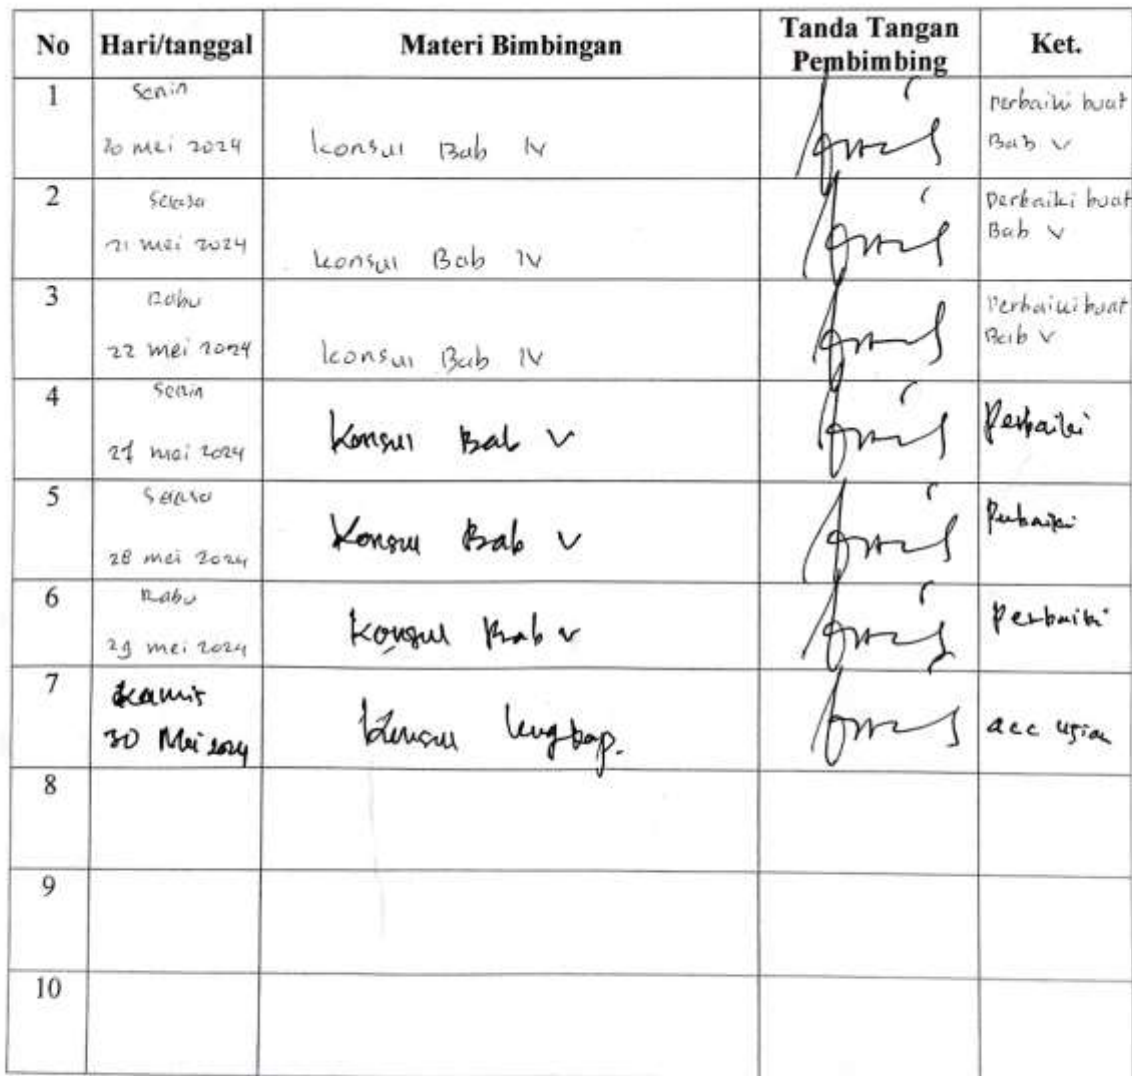 No Hari/tanggal Materi Bimbingan Tanda Tangan Pembimbing Ket.
1 Senin perbaiki buat
20 mei 2024 konsul Bab IV Bab V
2 Selasa perbaiki buat
21 mei 2024 konsul Bab IV Bab V
3 Rabu Perbaiki buat
22 mei 2024 konsul Bab IV Bab V
4 Senin
27 mei 2024 Konsul Bab V Perbaiki
5 Selasa
28 mei 2024 Konsul Bab V Perbaiki
6 Rabu
29 mei 2024 Konsul Bab V Perbaiki
7 Kamis
30 Mei 2024 Konsul lengkap. acc ujian
8
9
10